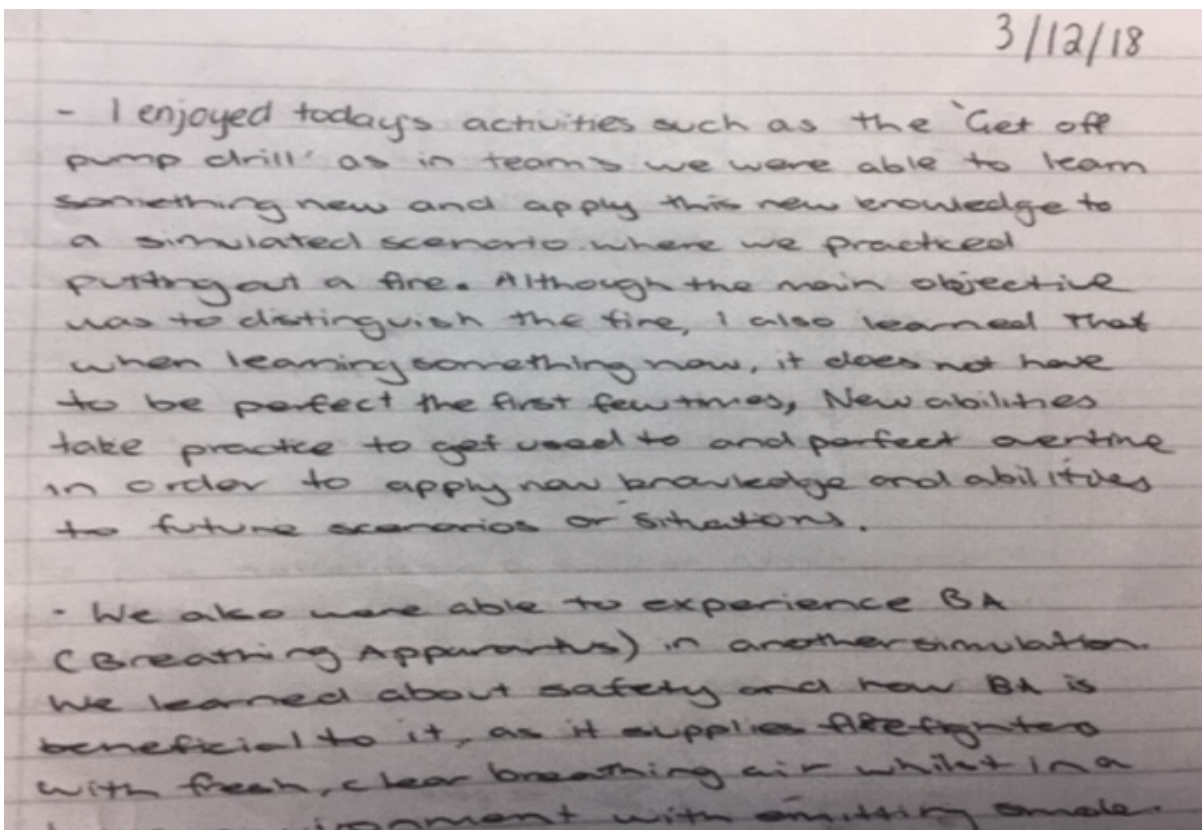 3/12/18
- I enjoyed today's activities such as the 'Get off
pump drill' as in teams we were able to learn
something new and apply this new knowledge to
a simulated scenario where we practiced
putting out a fire. Although the main objective
was to distinguish the fire, I also learned that
when learning something new, it does not have
to be perfect the first few times, New abilities
take practice to get used to and perfect overtime
in order to apply new knowledge and abilities
to future scenarios or situations.
- We also were able to experience BA
(Breathing Apparantus) in another simulation.
We learned about safety and how BA is
beneficial to it, as it supplies firefighters
with fresh, clear breathing air whilst in a
environment with emitting smoke.